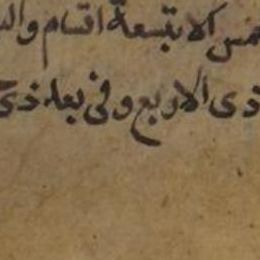 خمس الا بتسعة اقسام وال
ذى الاربع وفى بعد ذى